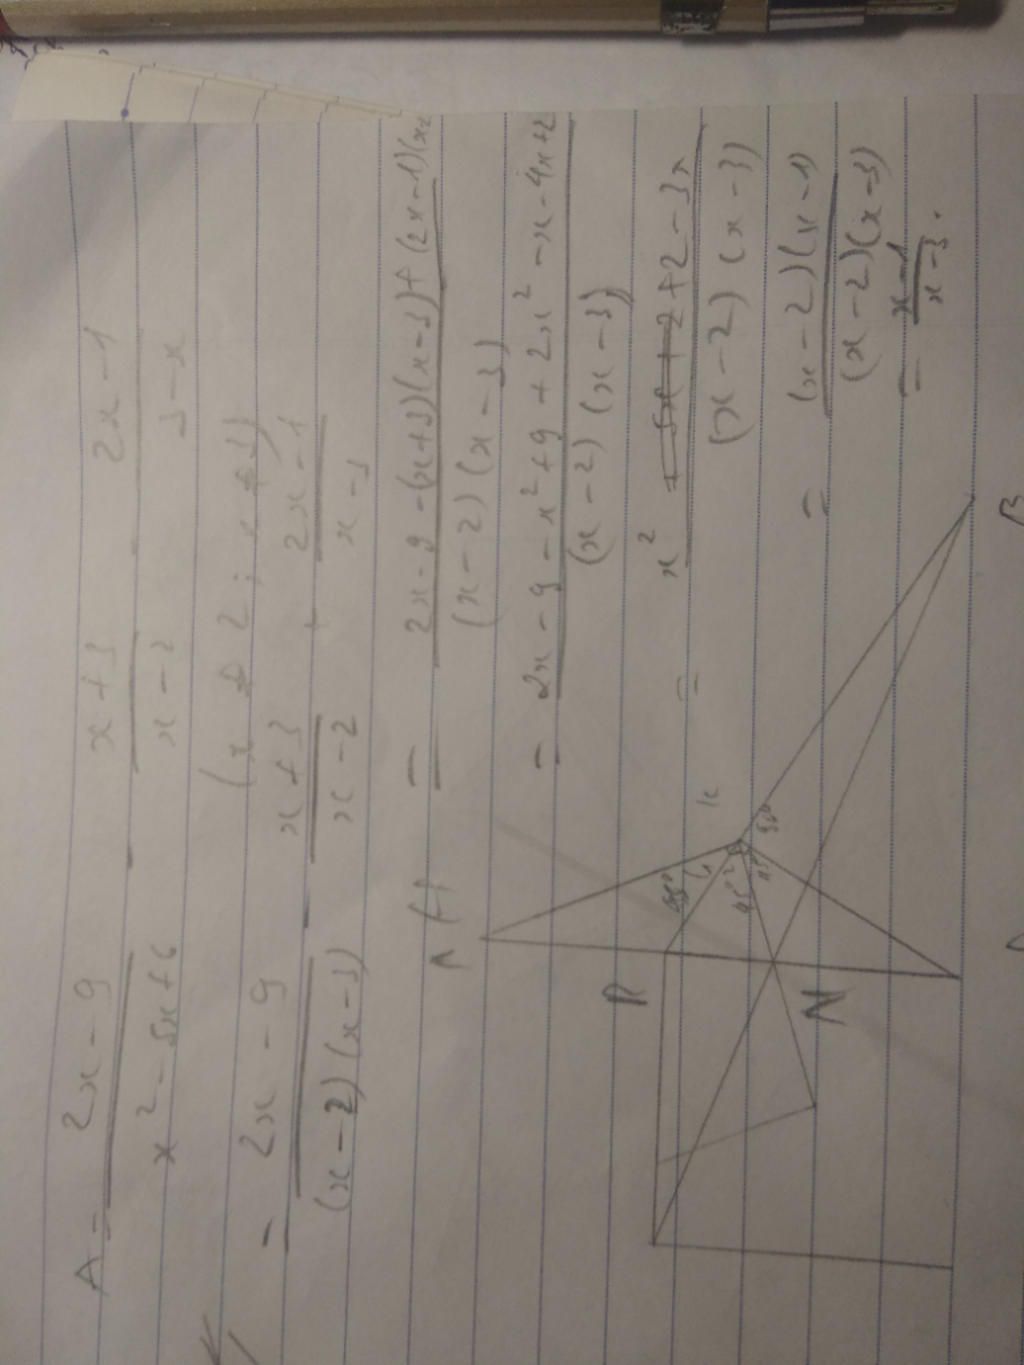 A = (2x - 9)/(x² - 5x + 6) - (x + 3)/(x - 2) - (2x - 1)/(3 - x)
(x ≠ 2 ; x ≠ 3)
= (2x - 9)/((x - 2)(x - 3)) - (x + 3)/(x - 2) + (2x - 1)/(x - 3)
= (2x - 9 - (x+3)(x-3) + (2x-1)(x-2
(x - 2)(x - 3)
= (2x - 9 - x² + 9 + 2x² - x - 4x + 2)/((x - 2)(x - 3))
= (x² + 2 - 3x)/((x - 2)(x - 3))
= ((x - 2)(x - 1))/((x - 2)(x - 3))
= (x - 1)/(x - 3).
A
R
N
B
45°